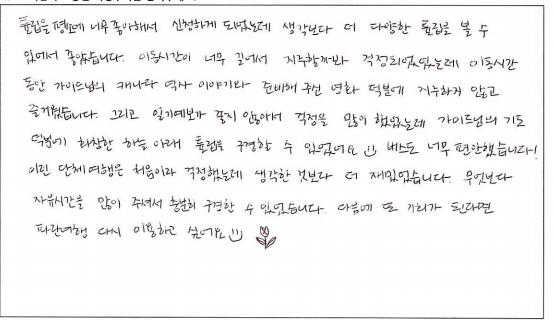 튤립을 평소에 너무 좋아해서 신청하게 되었는데 생각보다 더 다양한 튤립을 볼 수
있어서 좋았습니다. 이동시간이 너무 길어서 지루할까봐 걱정되었었는데 이동시간
동안 가이드님의 캐나다 역사 이야기와 준비해 주신 영화 덕분에 지루하지 않고
즐거웠습니다. 그리고 일기예보가 좋지 않아서 걱정을 많이 했었는데 가이드님의 기도
덕분에 화창한 하늘 아래 튤립을 구경할 수 있었어요 버스도 너무 편안했습니다!
이런 단체여행은 처음이라 걱정했는데 생각한 것보다 더 재밌었습니다. 무엇보다
자유시간을 많이 주셔서 충분히 구경할 수 있었습니다. 다음에 또 기회가 된다면
파란여행 다시 이용하고 싶어요